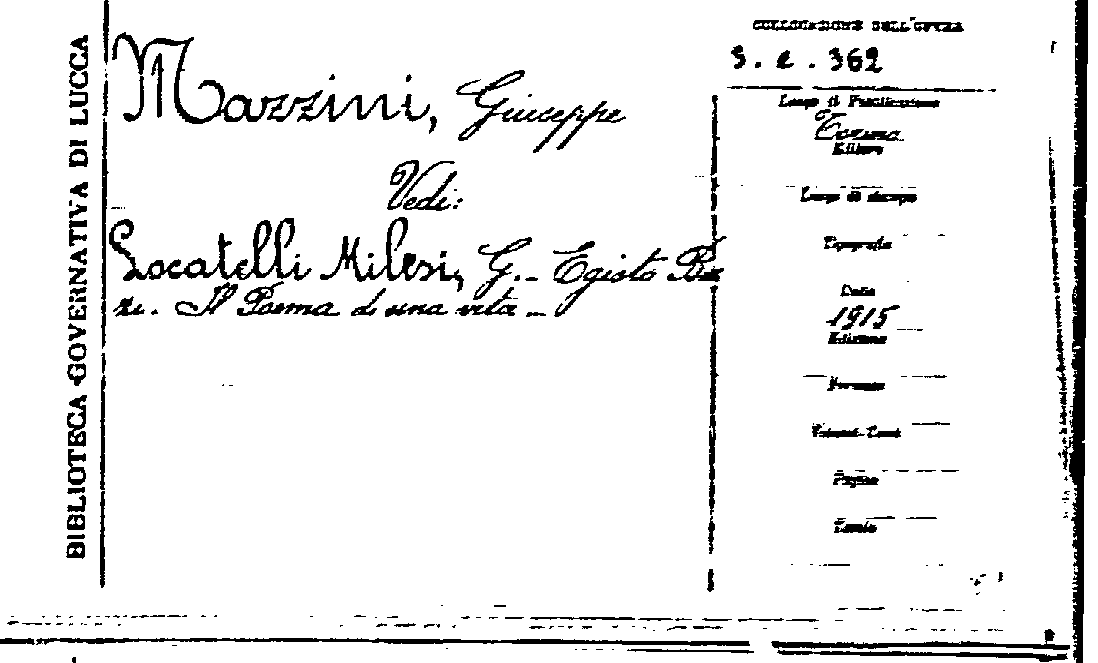 BIBLIOTECA GOVERNATIVA DI LUCCA
Mazzini, Giuseppe
Vedi:
Locatelli Milesi, G. - Egisto Bez
zi. Il Poema di una vita -
COLLOCAZIONE DELL'OPERA
3. e. 362
Luogo di Pubblicazione
Editore
Luogo di stampa
Tipografia
Data
1915
Edizione
Formato
Volumi-Tomi
Pagine
Tavole